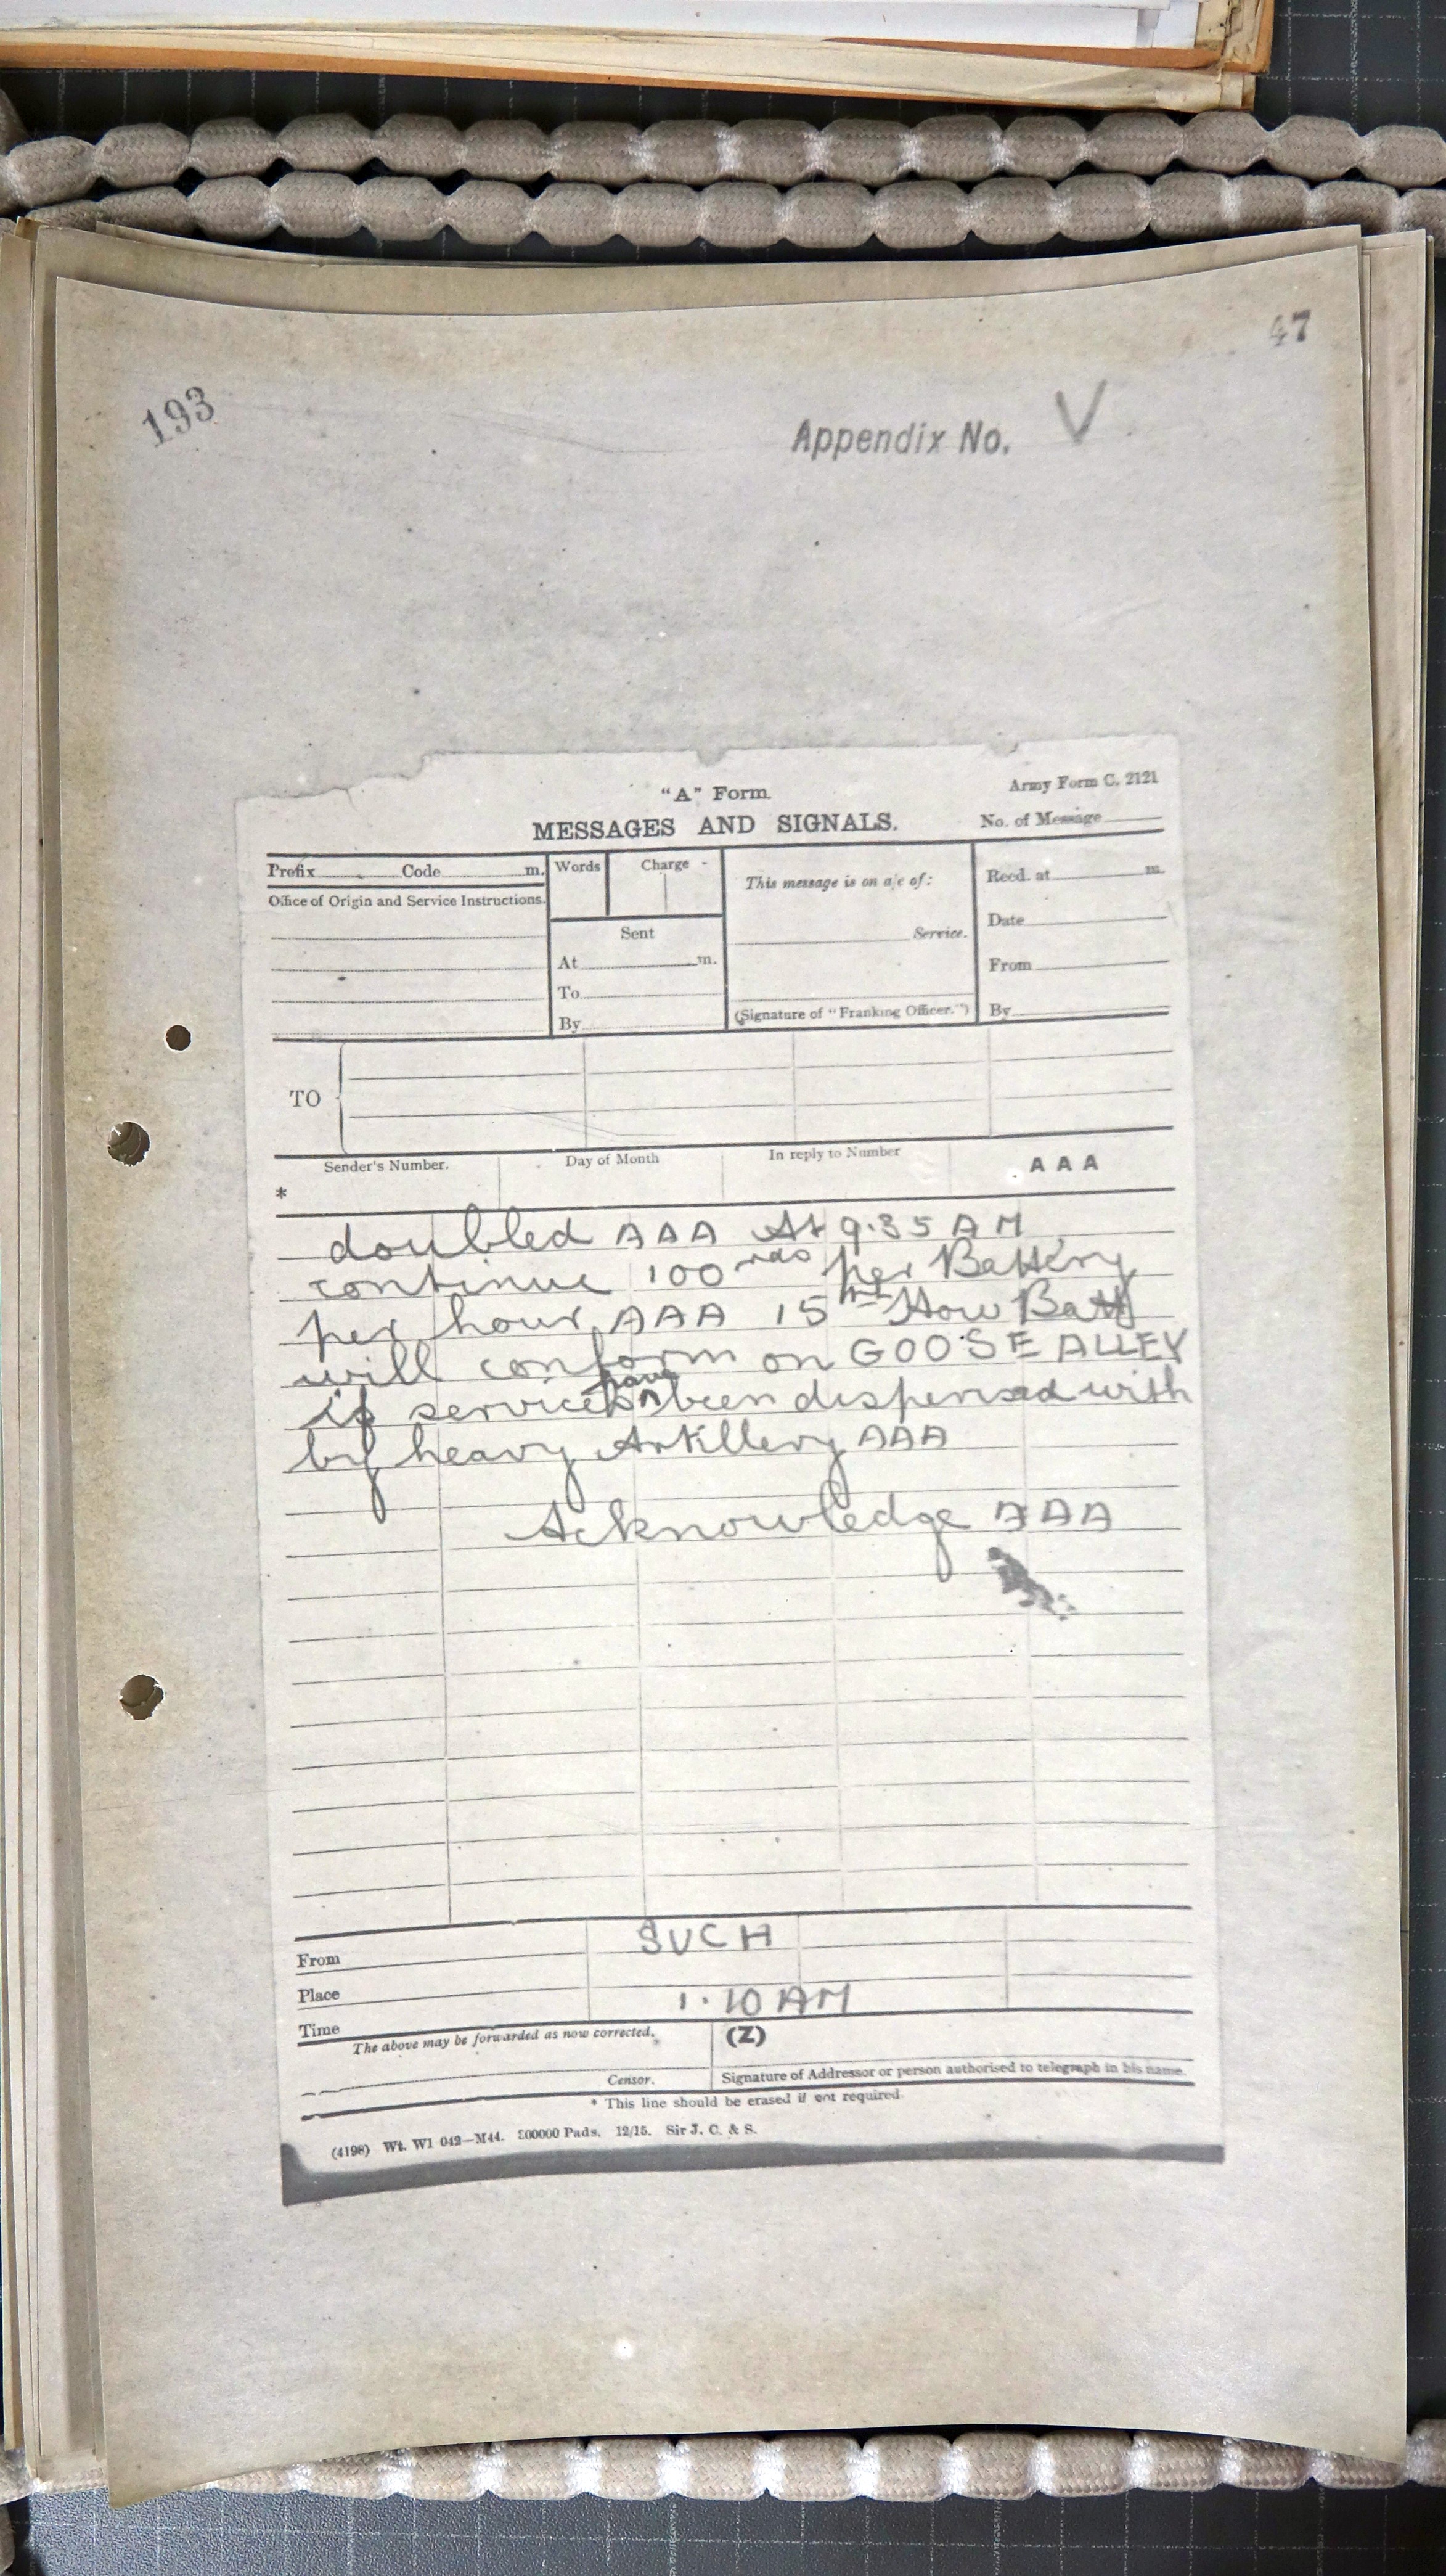 47
193
Appendix No. V
"A" Form.
Army Form C. 2121
MESSAGES AND SIGNALS.
No. of Message
Prefix Code m.
Words Charge
This message is on a/c of:
Recd. at m.
Office of Origin and Service Instructions.
Sent
Service.
Date
At m.
From
To
(Signature of "Franking Officer.")
By
By
TO
Sender's Number. Day of Month In reply to Number AAA
*
doubled AAA At 9.35 AM
continue 100 rds per Battery
per hour AAA 15th How Batt
will conform on GOOSE ALLEY
if services have been dispensed with
by heavy Artillery AAA
Acknowledge AAA
From SUCH
Place
Time 1.10 AM
The above may be forwarded as now corrected. (Z)
Censor. Signature of Addressor or person authorised to telegraph in his name.
* This line should be erased if not required
(4198) Wt. W1 042—M44. 300000 Pads. 12/15. Sir J. C. & S.